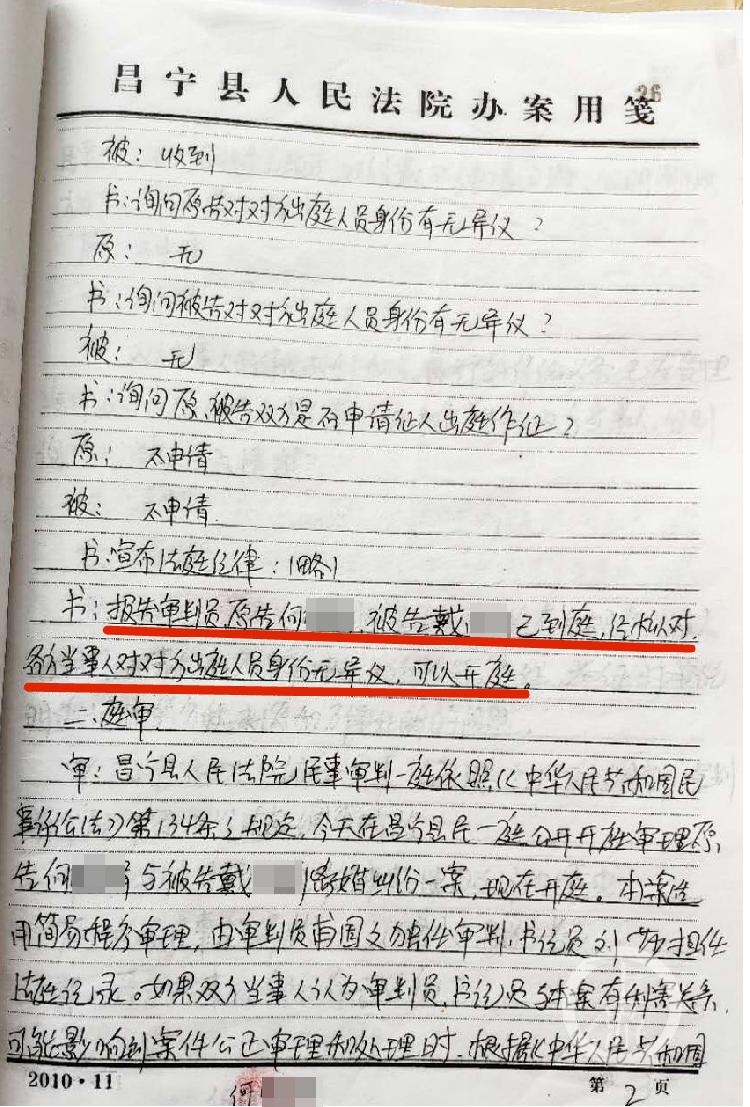 26
昌宁县人民法院办案用笺
被：收到
书：询问原告对对方出庭人员身份有无异议？
原：无
书：询问被告对对方出庭人员身份有无异议？
被：无
书：询问原、被告双方是否申请证人出庭作证？
原：不申请
被：不申请
书：宣布法庭纪律：（略）
书：报告审判员，原告何 、被告戴 已到庭，经核对
各方当事人对对方出庭人员身份无异议，可以开庭。
二、庭审
审：昌宁县人民法院民事审判一庭依照《中华人民共和国民
事诉讼法》第134条之规定，今天在昌宁县民一庭公开开庭审理原
告何 与被告戴 离婚纠纷一案，现在开庭。本案适
用简易程序审理，由审判员 国文 担任审判，书记员刘 担任
法庭记录。如果双方当事人认为审判员、书记员与本案有利害关系，
可能影响到案件公正审理和处理时，根据《中华人民共和国
2010·11
何
第2页